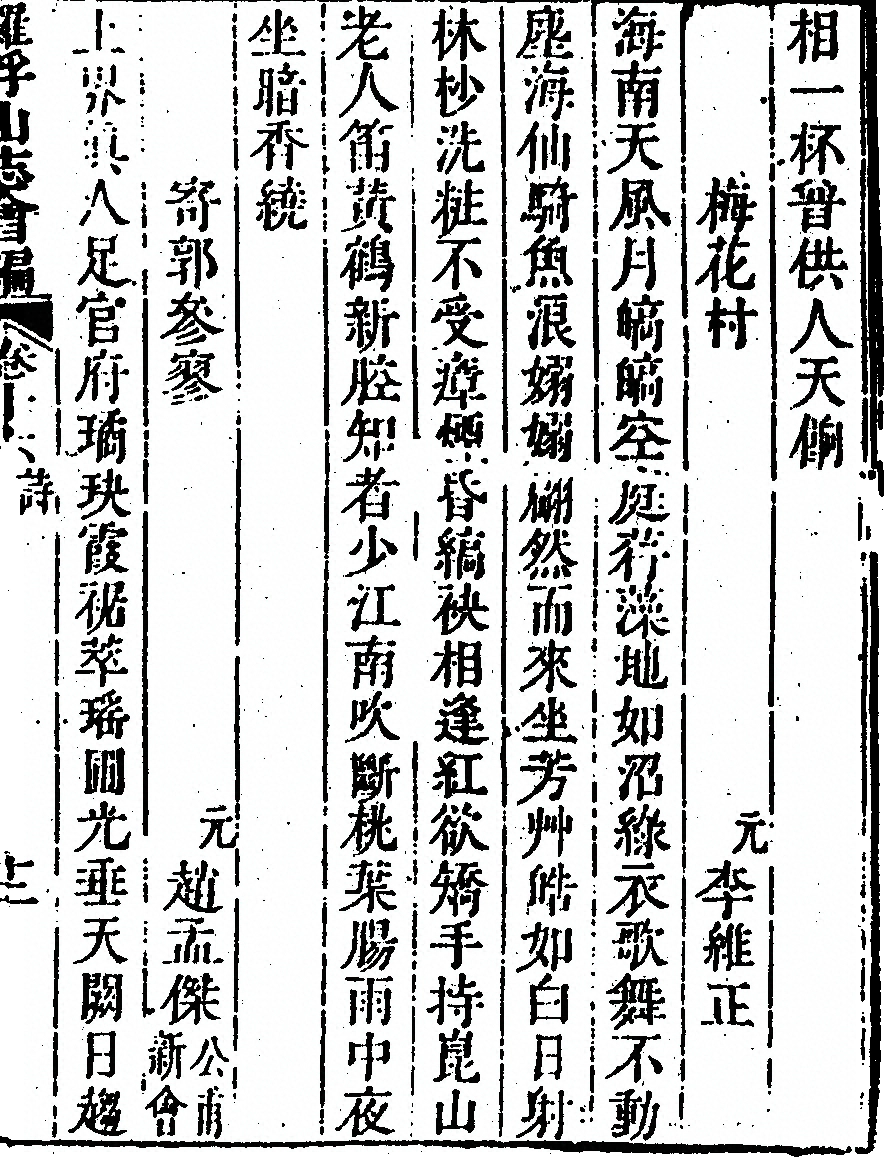 相一杯曾供人天餉
梅花村
元李維正
海南天風月皜皜空庭荇藻地如沼綠衣歌舞不動
塵海仙騎魚浪嫋嫋翩然而來坐芳艸皓如白日射
林杪洗粧不受瘴煙昏縞袂相逢紅欲矯手持崑山
老人笛黃鶴新腔知者少江南吹斷桃葉腸雨中夜
坐暗香繞
寄郭參寥
元趙孟傑公甫新會
上界眞人足官府璚玦霞裾萃瑤圃光垂天闕日趨
羅浮山志會編
卷十六
詩
十二